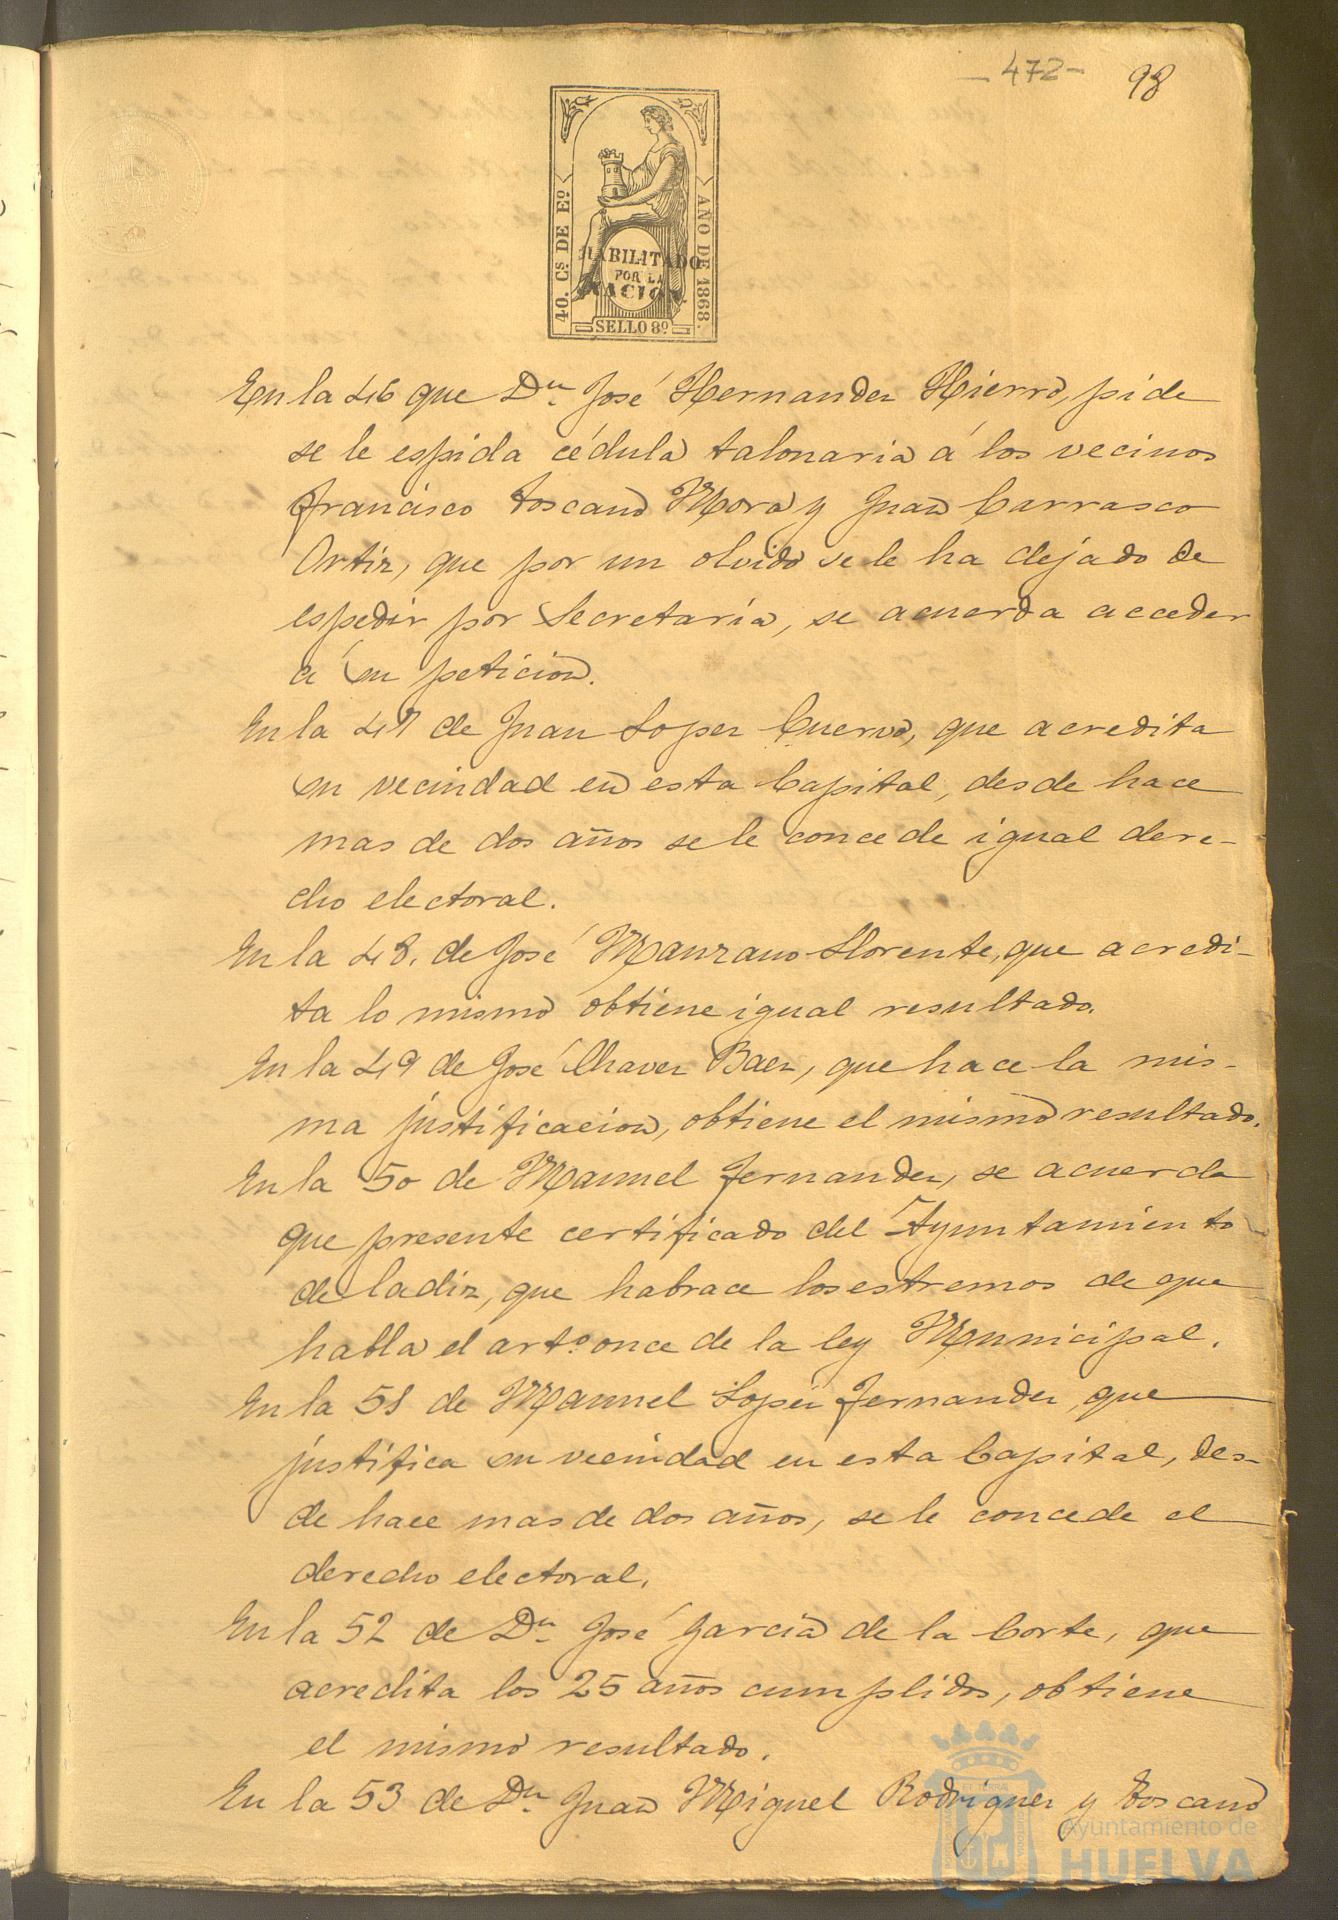 -472- 98
40. Cs DE Eo
AÑO DE 1868.
HABILITADO
POR LA
NACION.
SELLO 8º
En la 46 que Dn. José Hernandez Hierro, pide
se le espida cédula talonaria á los vecinos
Francisco Toscano Mora y Juan Carrasco
Ortiz, que por un olvido se le ha dejado de
espedir por Secretaría, se acuerda acceder
á su peticion.
En la 47 de Juan Lopez Cuervo, que acredita
su vecindad en esta Capital, desde hace
mas de dos años se le concede igual dere-
cho electoral.
En la 48. de José Manzano Llorente, que acredi-
ta lo mismo obtiene igual resultado.
En la 49 de José Chavez Baez, que hace la mis-
ma justificacion, obtiene el mismo resultado.
En la 50 de Manuel Fernandez, se acuerda
que presente certificado del Ayuntamiento
de Cadiz, que habrace los estremos de que
habla el arto. once de la ley Municipal.
En la 51 de Manuel Lopez Fernandez, que
justifica su vecindad en esta Capital, des-
de hace mas de dos años, se le concede el
derecho electoral.
En la 52 de Dn. José Garcia de la Corte, que
acredita los 25 años cumplidos, obtiene
el mismo resultado.
En la 53 de Dn. Juan Miguel Rodriguez y Toscano
Ayuntamiento de
HUELVA